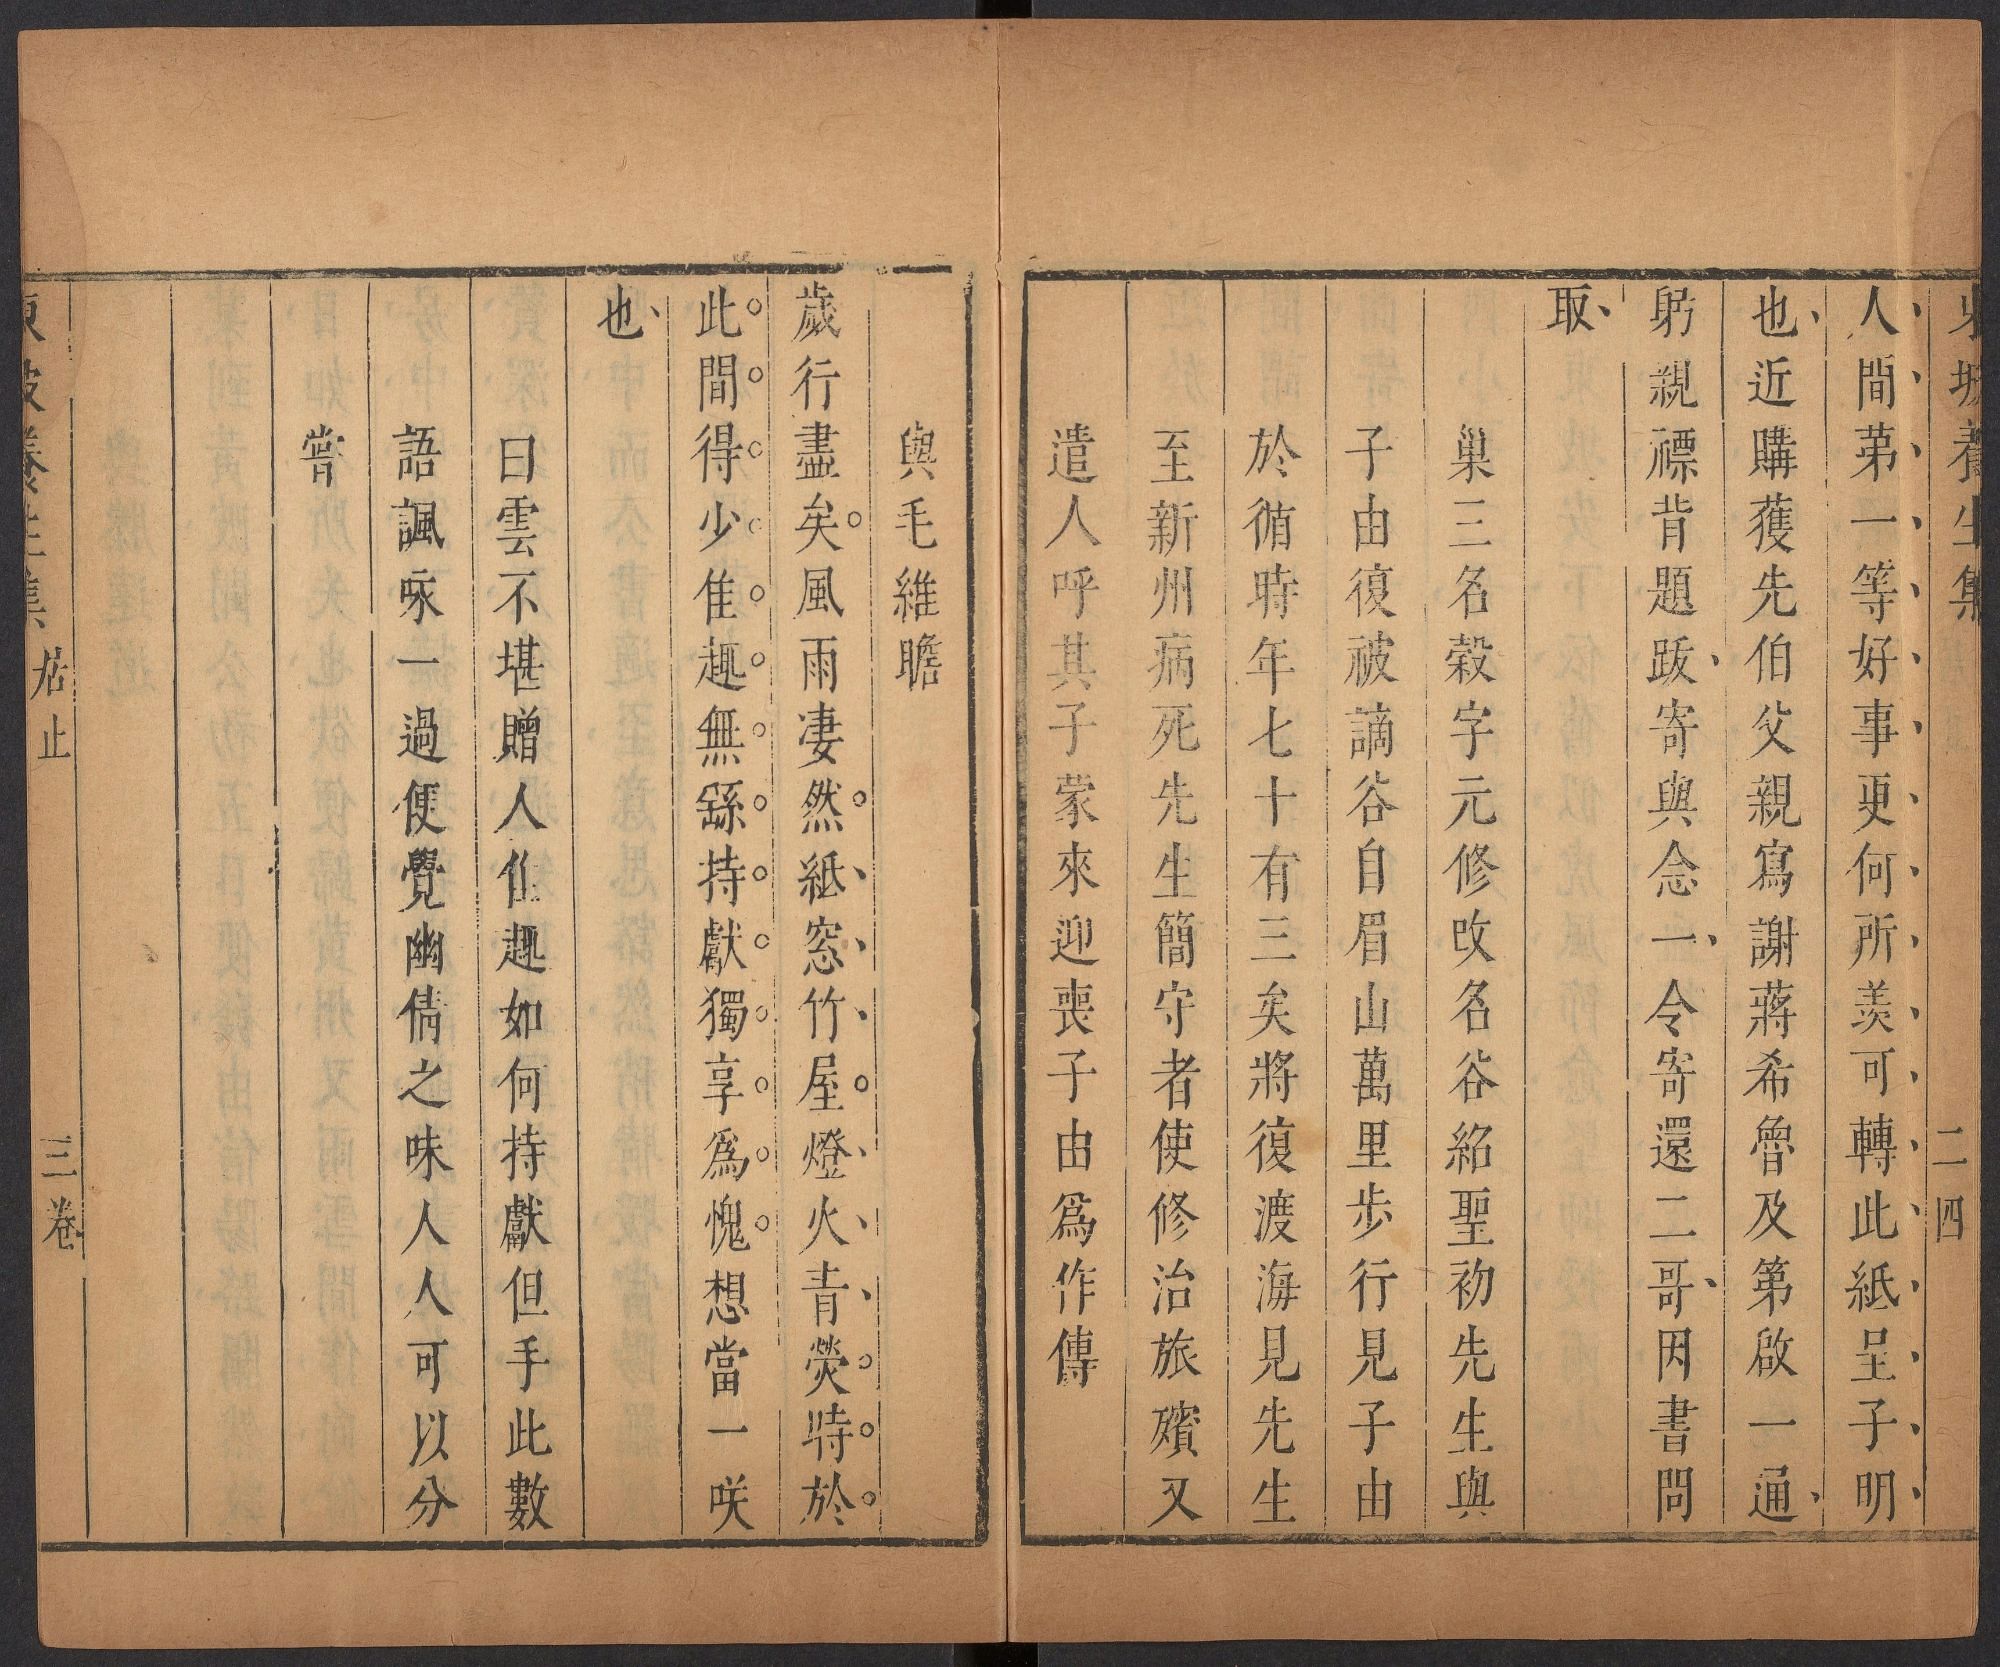 東坡養生集
二四
人間第一等好事更何所羨可轉此紙呈子明
也近購獲先伯父親寫謝蔣希魯及第啟一通
躬親褾背題䟦寄與念一令寄還二哥因書問
取
巢三名榖字元修改名谷紹聖初先生與
子由復被謫谷自眉山萬里步行見子由
於循時年七十有三矣將復渡海見先生
至新州病死先生簡守者使修治旅殯又
遣人呼其子蒙來迎喪子由爲作傳
與毛維瞻
歲行盡矣風雨凄然紙窓竹屋燈火青熒時於
此間得少佳趣無繇持獻獨享爲愧想當一咲
也
曰雲不堪贈人佳趣如何持獻但手此數
語諷咏一過便覺幽倩之味人人可以分
嘗
東坡養生集
居止
三卷